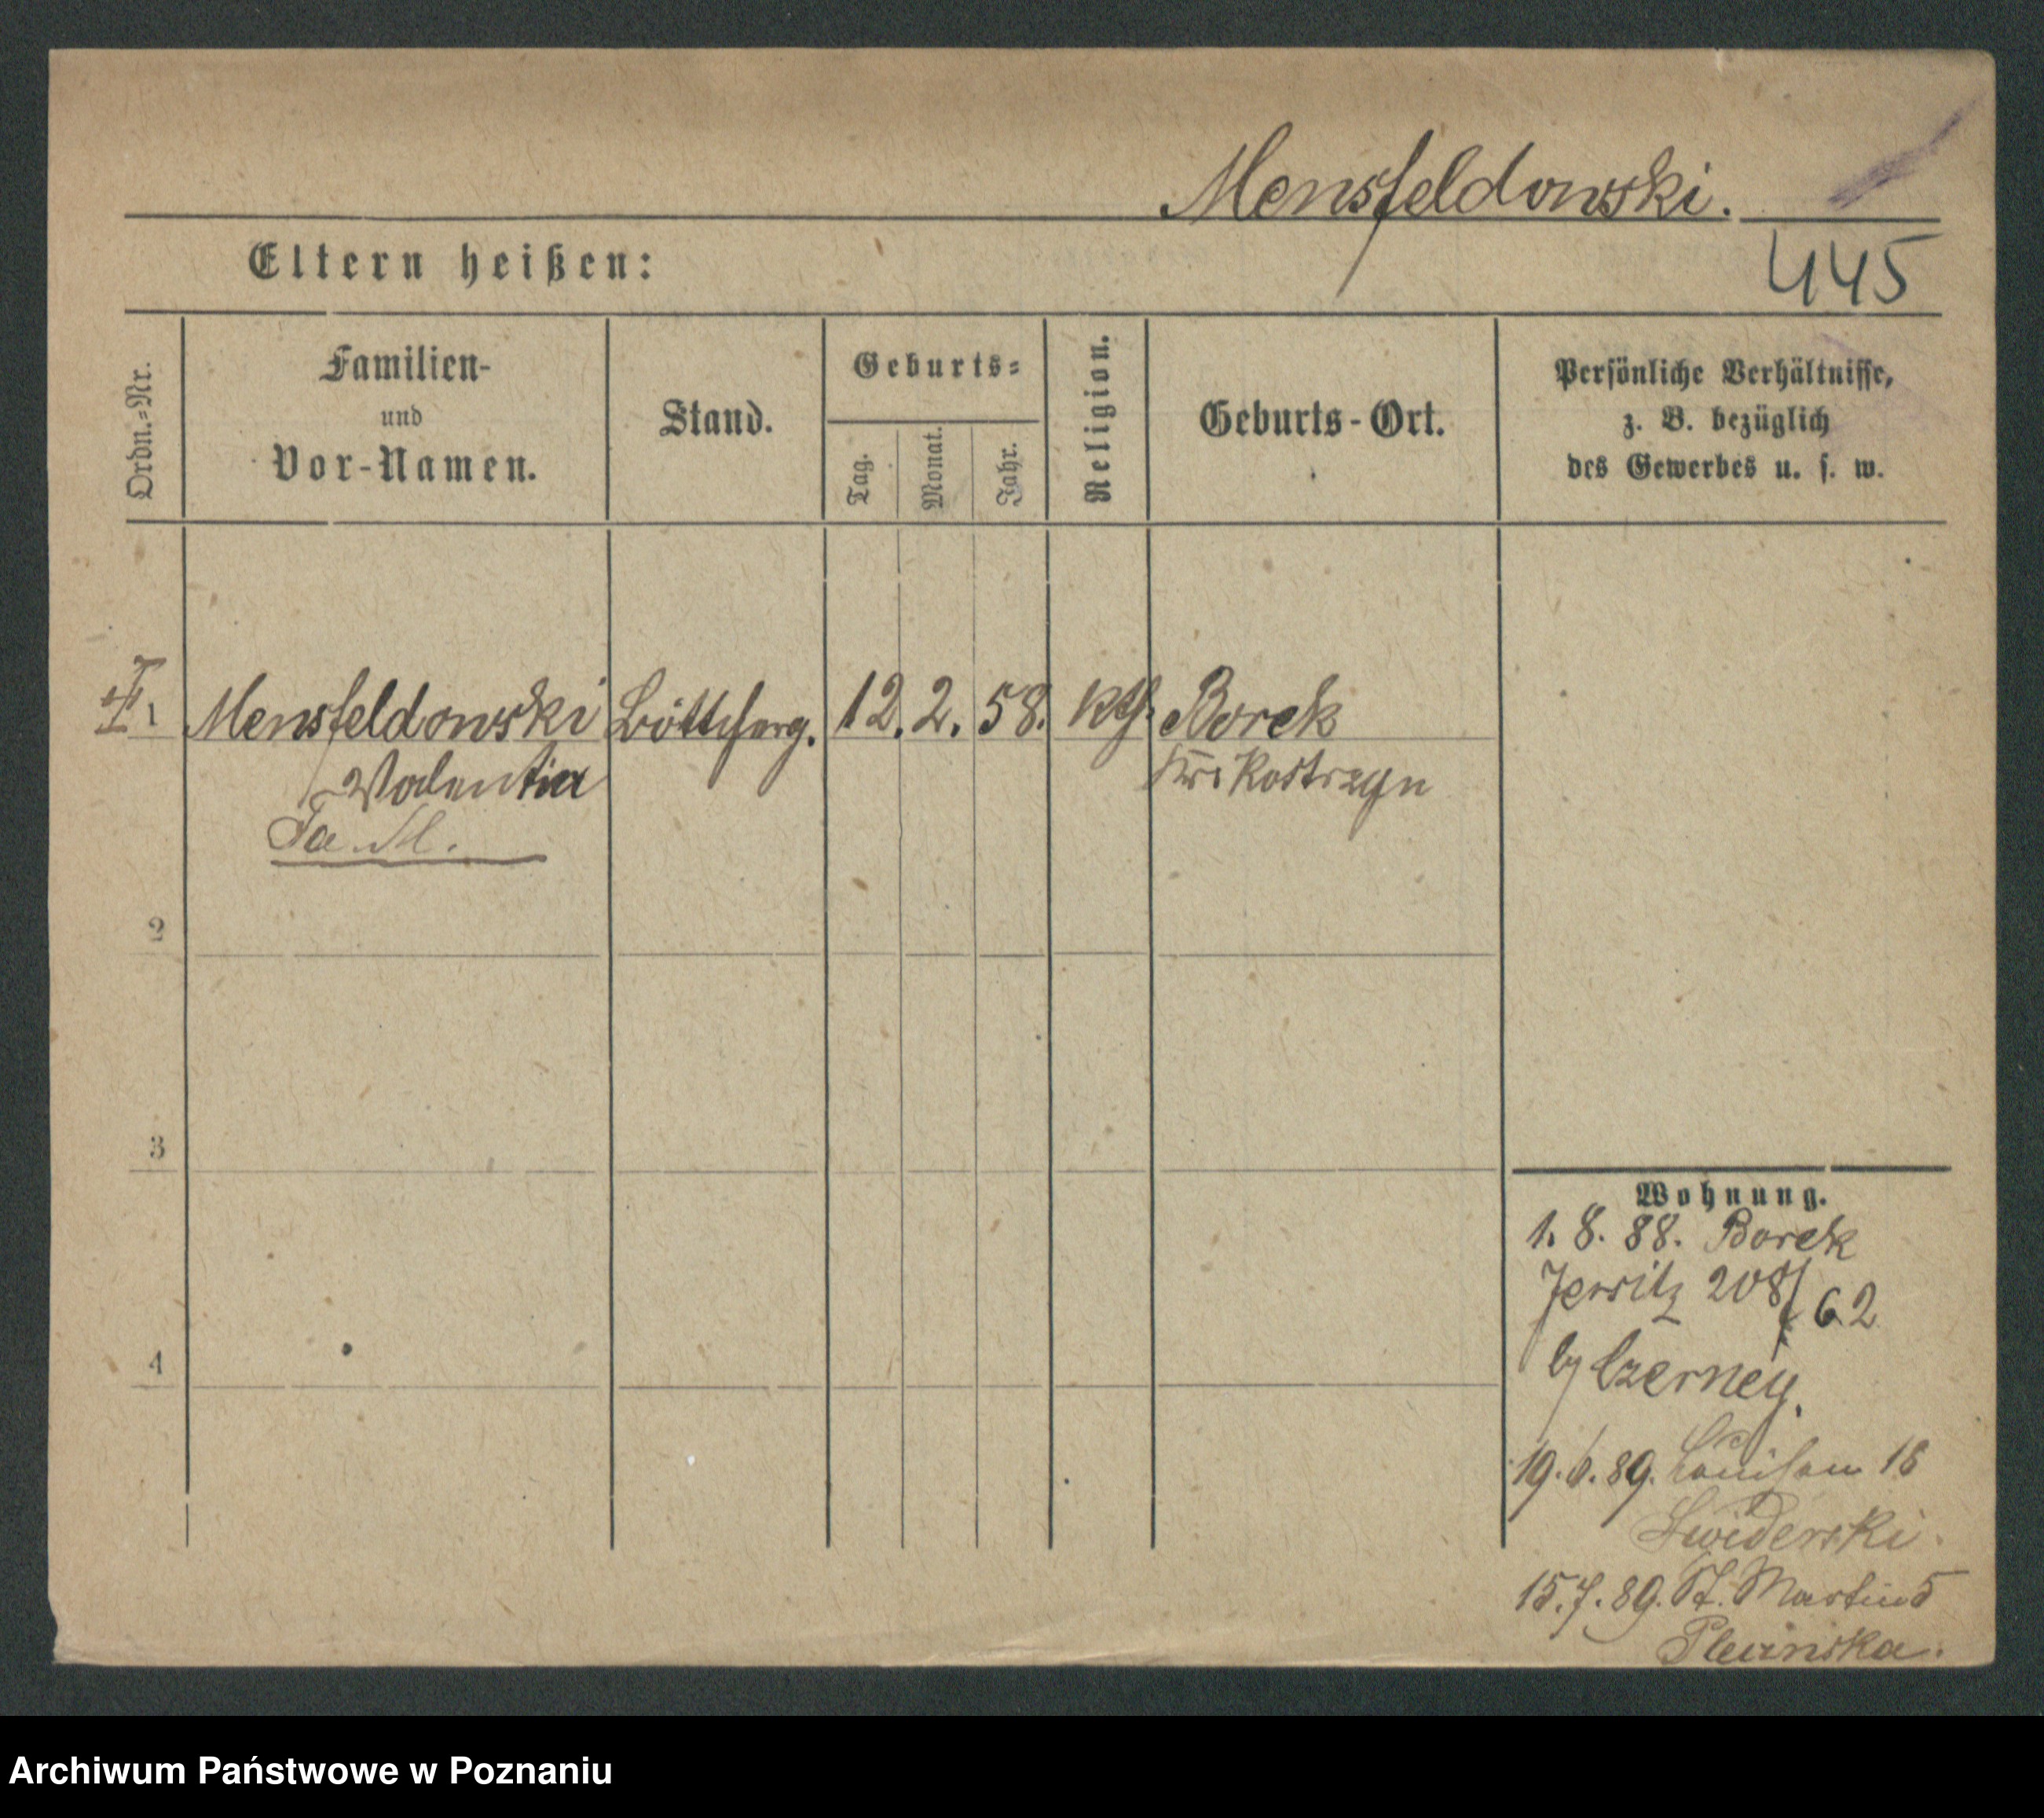 Mensfeldowski.
445
Eltern heißen:
Ordn.=Nr.
Familien-
und
Vor-Namen.
Stand.
Geburts=
Tag.
Monat.
Jahr.
Religion.
Geburts-Ort.
Persönliche Verhältnisse,
z. B. bezüglich
des Gewerbes u. s. w.
1 Mensfeldowski Böttcherg. 12. 2. 58. kth. Borek
Valentin Kr. Kostrzyn
Fa. M.
2
3
4
Wohnung.
1. 8. 88. Borek
Jersitz 208/62
by Czerney.
19. 6. 89. Louisen 18
Swiderski.
15. 7. 89. St. Martin 5
Archiwum Państwowe w Poznaniu